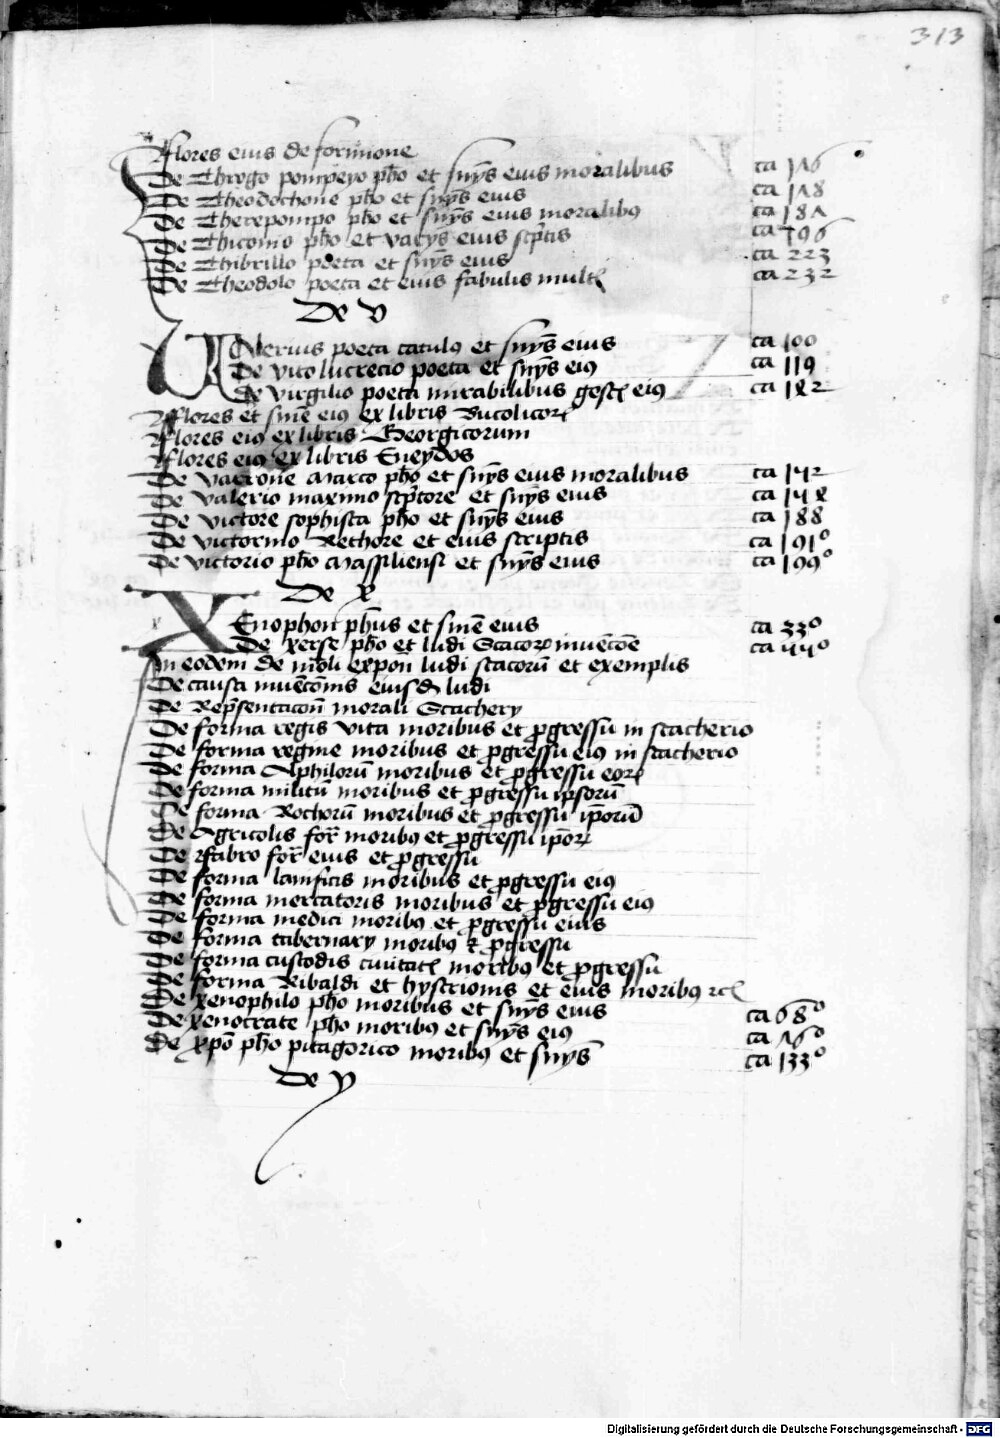 313
Flores eius de formione
De Throgo pompeyo pho et sniys eius moralibus ca 1Λ6
De Theodochone pho et sniys eius ca 1Λ8
De Therepompo pho et sniys eius moralibꝯ ca 18Λ
De Thicomo pho et varijs eius scptis ca 196
De Thibrillo poeta et sniys eius ca 223
De Theodolo poeta et eius fabulis mult ca 232
De v
Valerius poeta catulꝯ et sniys eius ca 100
De vito lucrecio poeta et sniys eiꝯ ca 119
De virgilio poeta mirabilibus gest eiꝯ ca 182
Flores et snie eiꝯ ex libris Bucolicor
Flores eiꝯ ex libris Georgicorum
Flores eiꝯ ex libris Eneydos
De varrone Marco pho et sniys eius moralibus ca 142
De valerio maximo scptore et sniys eius ca 148
De victore sophista pho et sniys eius ca 188
De victorino Rethore et eius scriptis ca 191º
De victorio pho Massiliensi et sniys eius ca 199º
De x
Xenophon phus et snie eius ca 33º
De xerse pho et ludi Scacor inuencoe ca 44º
In eodem de moli expon ludi scacoru et exemplis
De causa inuenconis eiusd ludi
De Repsentaconi morali Scachery
De forma regis vita moribus et pgressu in scacherio
De forma regine moribus et pgressu eiꝯ in scacherio
De forma Alphiloru moribus et pgressu eor
De forma militu moribus et pgressu ipsoru
De forma Rochoru moribus et pgressu iporu
De Agricolis for moribꝯ et pgressu ipor
De fabro for eius et pgressu
De forma lanificis moribus et pgressu eiꝯ
De forma mercatoris moribus et pgressu eiꝯ
De forma medici moribꝯ et pgressu eius
De forma tabernary moribꝯ et pgressu
De forma custodis ciuitat moribꝯ et pgressu
De forma Ribaldi et hystrionis et eius moribꝯ etc
De xenophilo pho moribus et sniys eius ca 68º
De xenocrate pho moribꝯ et sniys eiꝯ ca Λ6º
De xpo pho pitagorico moribꝯ et sniys ca 133º
De y
Digitalisierung gefördert durch die Deutsche Forschungsgemeinschaft - DFG